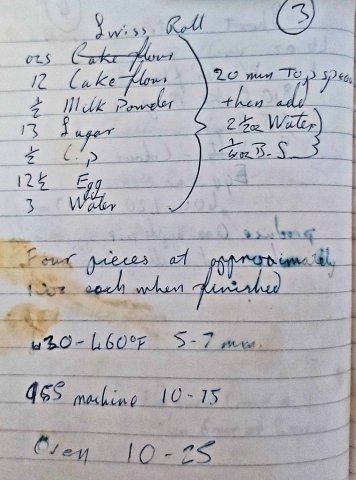 3
Swiss Roll
ozs Cake flour
12 Cake flour
½ Milk Powder
13 Sugar
½ C.P
12½ Egg
3 Water
20 min Top speed
then add
2½oz Water
¼oz B.S.
Four pieces at approximately
each when finished
430-460°F 5-7 min.
machine 10-15
Oven 10-25